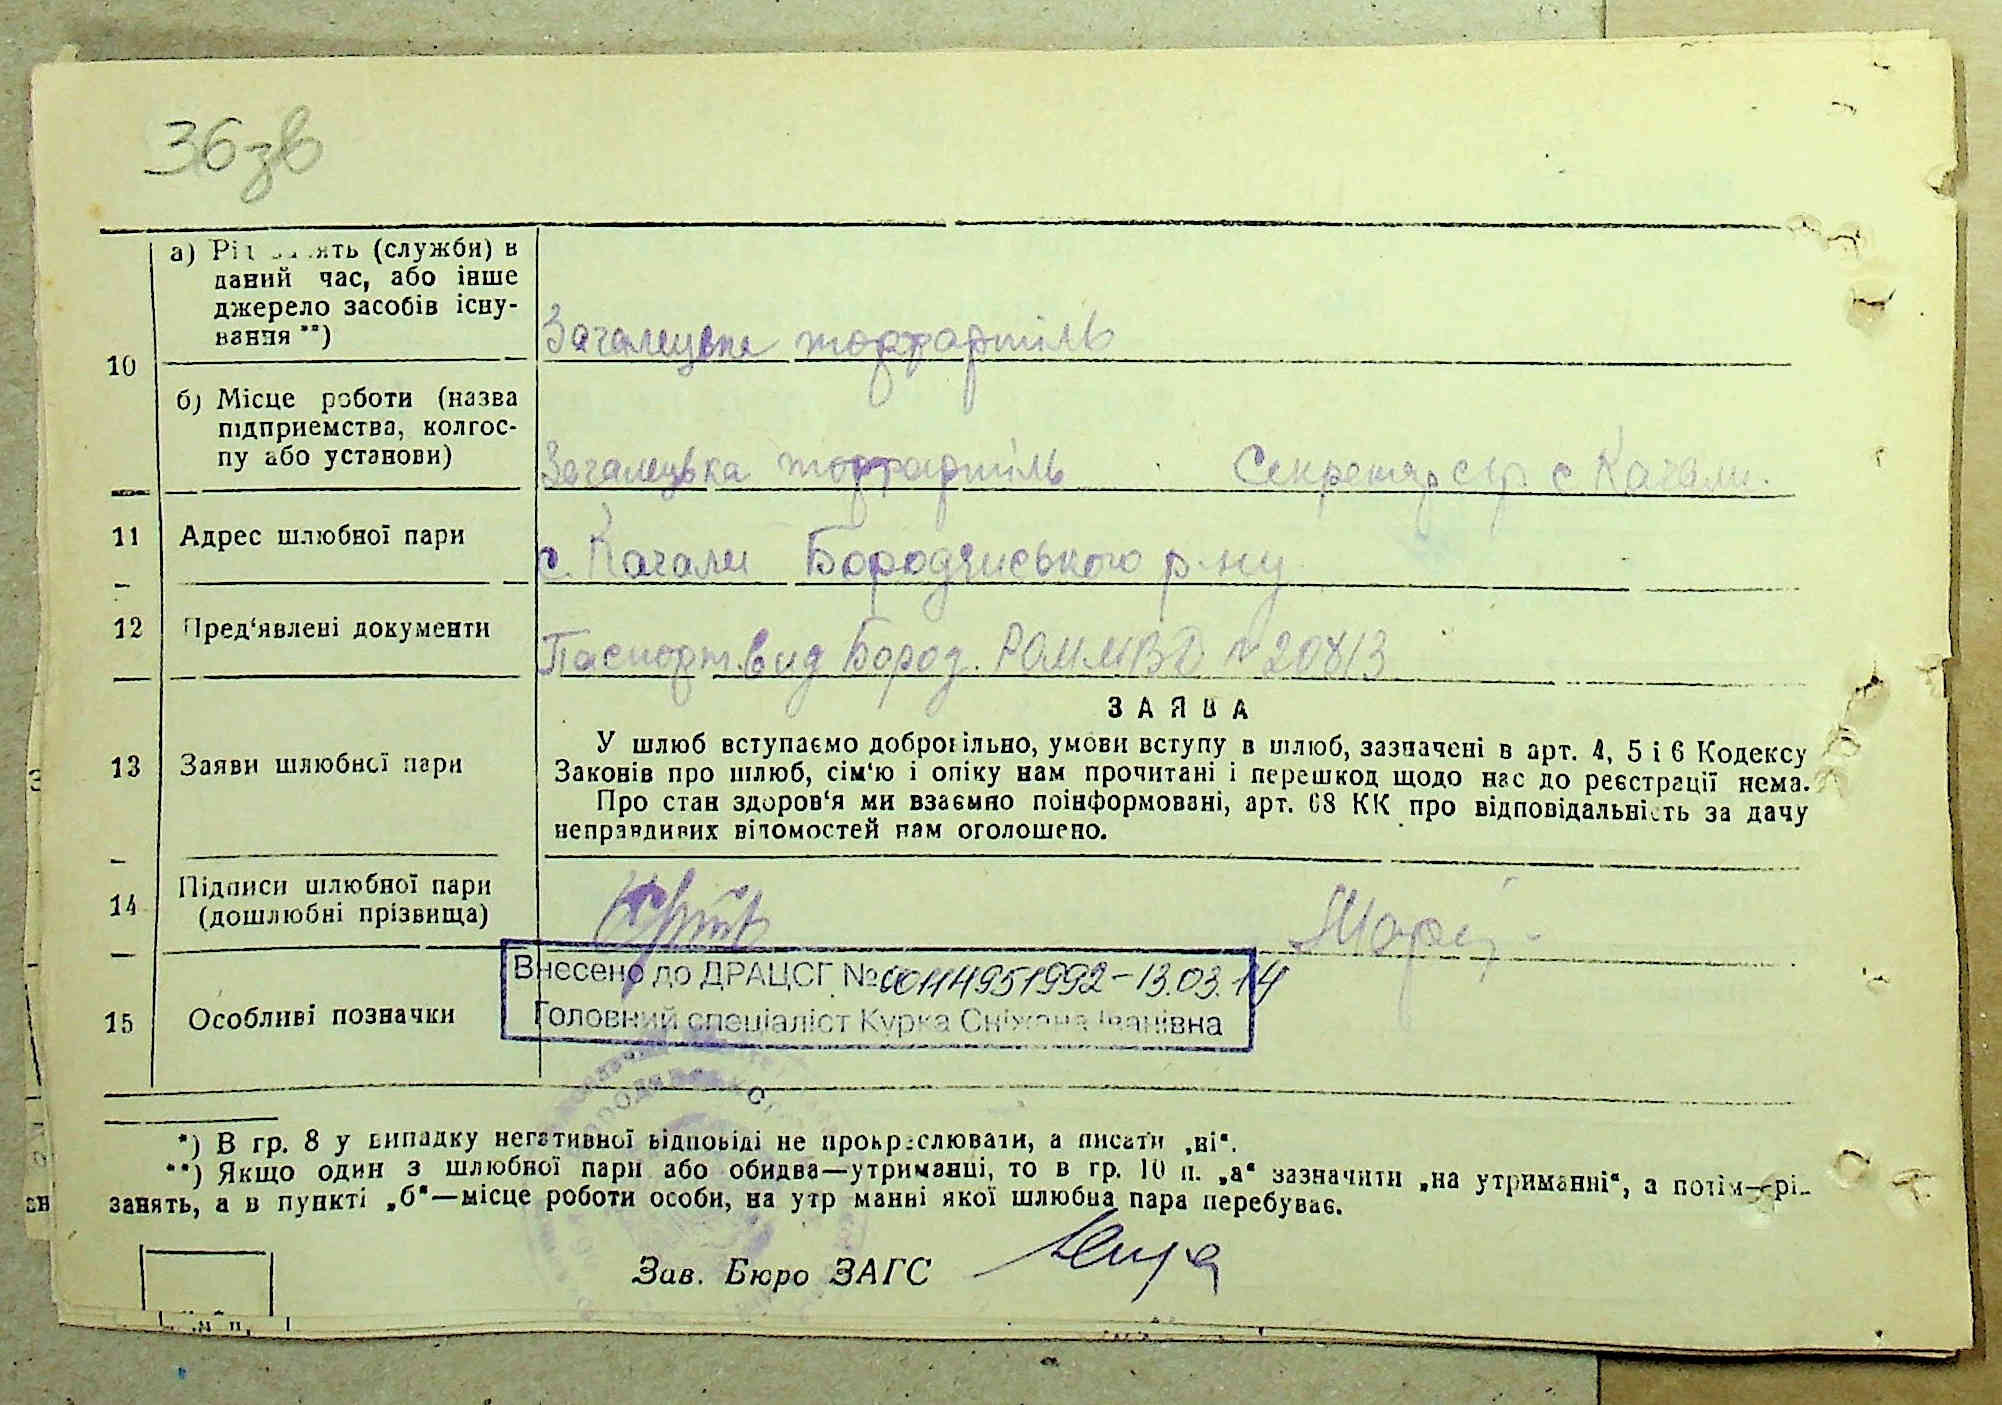 36зв
а) Рід занять (служби) в
даний час, або інше
джерело засобів існу-
вання **)
10
Загалецька торфартіль
б) Місце роботи (назва
підприємства, колгос-
пу або установи)
Загалецька торфартіль Секретар с/р с Качали.
11 Адрес шлюбної пари
с. Качали Бородянського р-ну
12 Пред'явлені документи
Паспорт вид Бород. РОМ МВД № 20813
ЗАЯВА
13 Заяви шлюбної пари
У шлюб вступаємо добровільно, умови вступу в шлюб, зазначені в арт. 4, 5 і 6 Кодексу
Законів про шлюб, сім'ю і опіку нам прочитані і перешкод щодо нас до реєстрації нема.
Про стан здоров'я ми взаємно поінформовані, арт. 68 КК про відповідальність за дачу
неправдивих відомостей нам оголошено.
14 Підписи шлюбної пари
(дошлюбні прізвища)
Внесено до ДРАЦСГ № 00114951992-13.03.14
15 Особливі позначки
Головний спеціаліст Курка Сніжана Іванівна
*) В гр. 8 у випадку негативної відповіді не прокреслювати, а писати „ні“.
**) Якщо один з шлюбної пари або обидва—утриманці, то в гр. 10 п. „а“ зазначити „на утриманні“, а потім—рід
занять, а в пункті „б“—місце роботи особи, на утр манні якої шлюбна пара перебуває.
Зав. Бюро ЗАГС